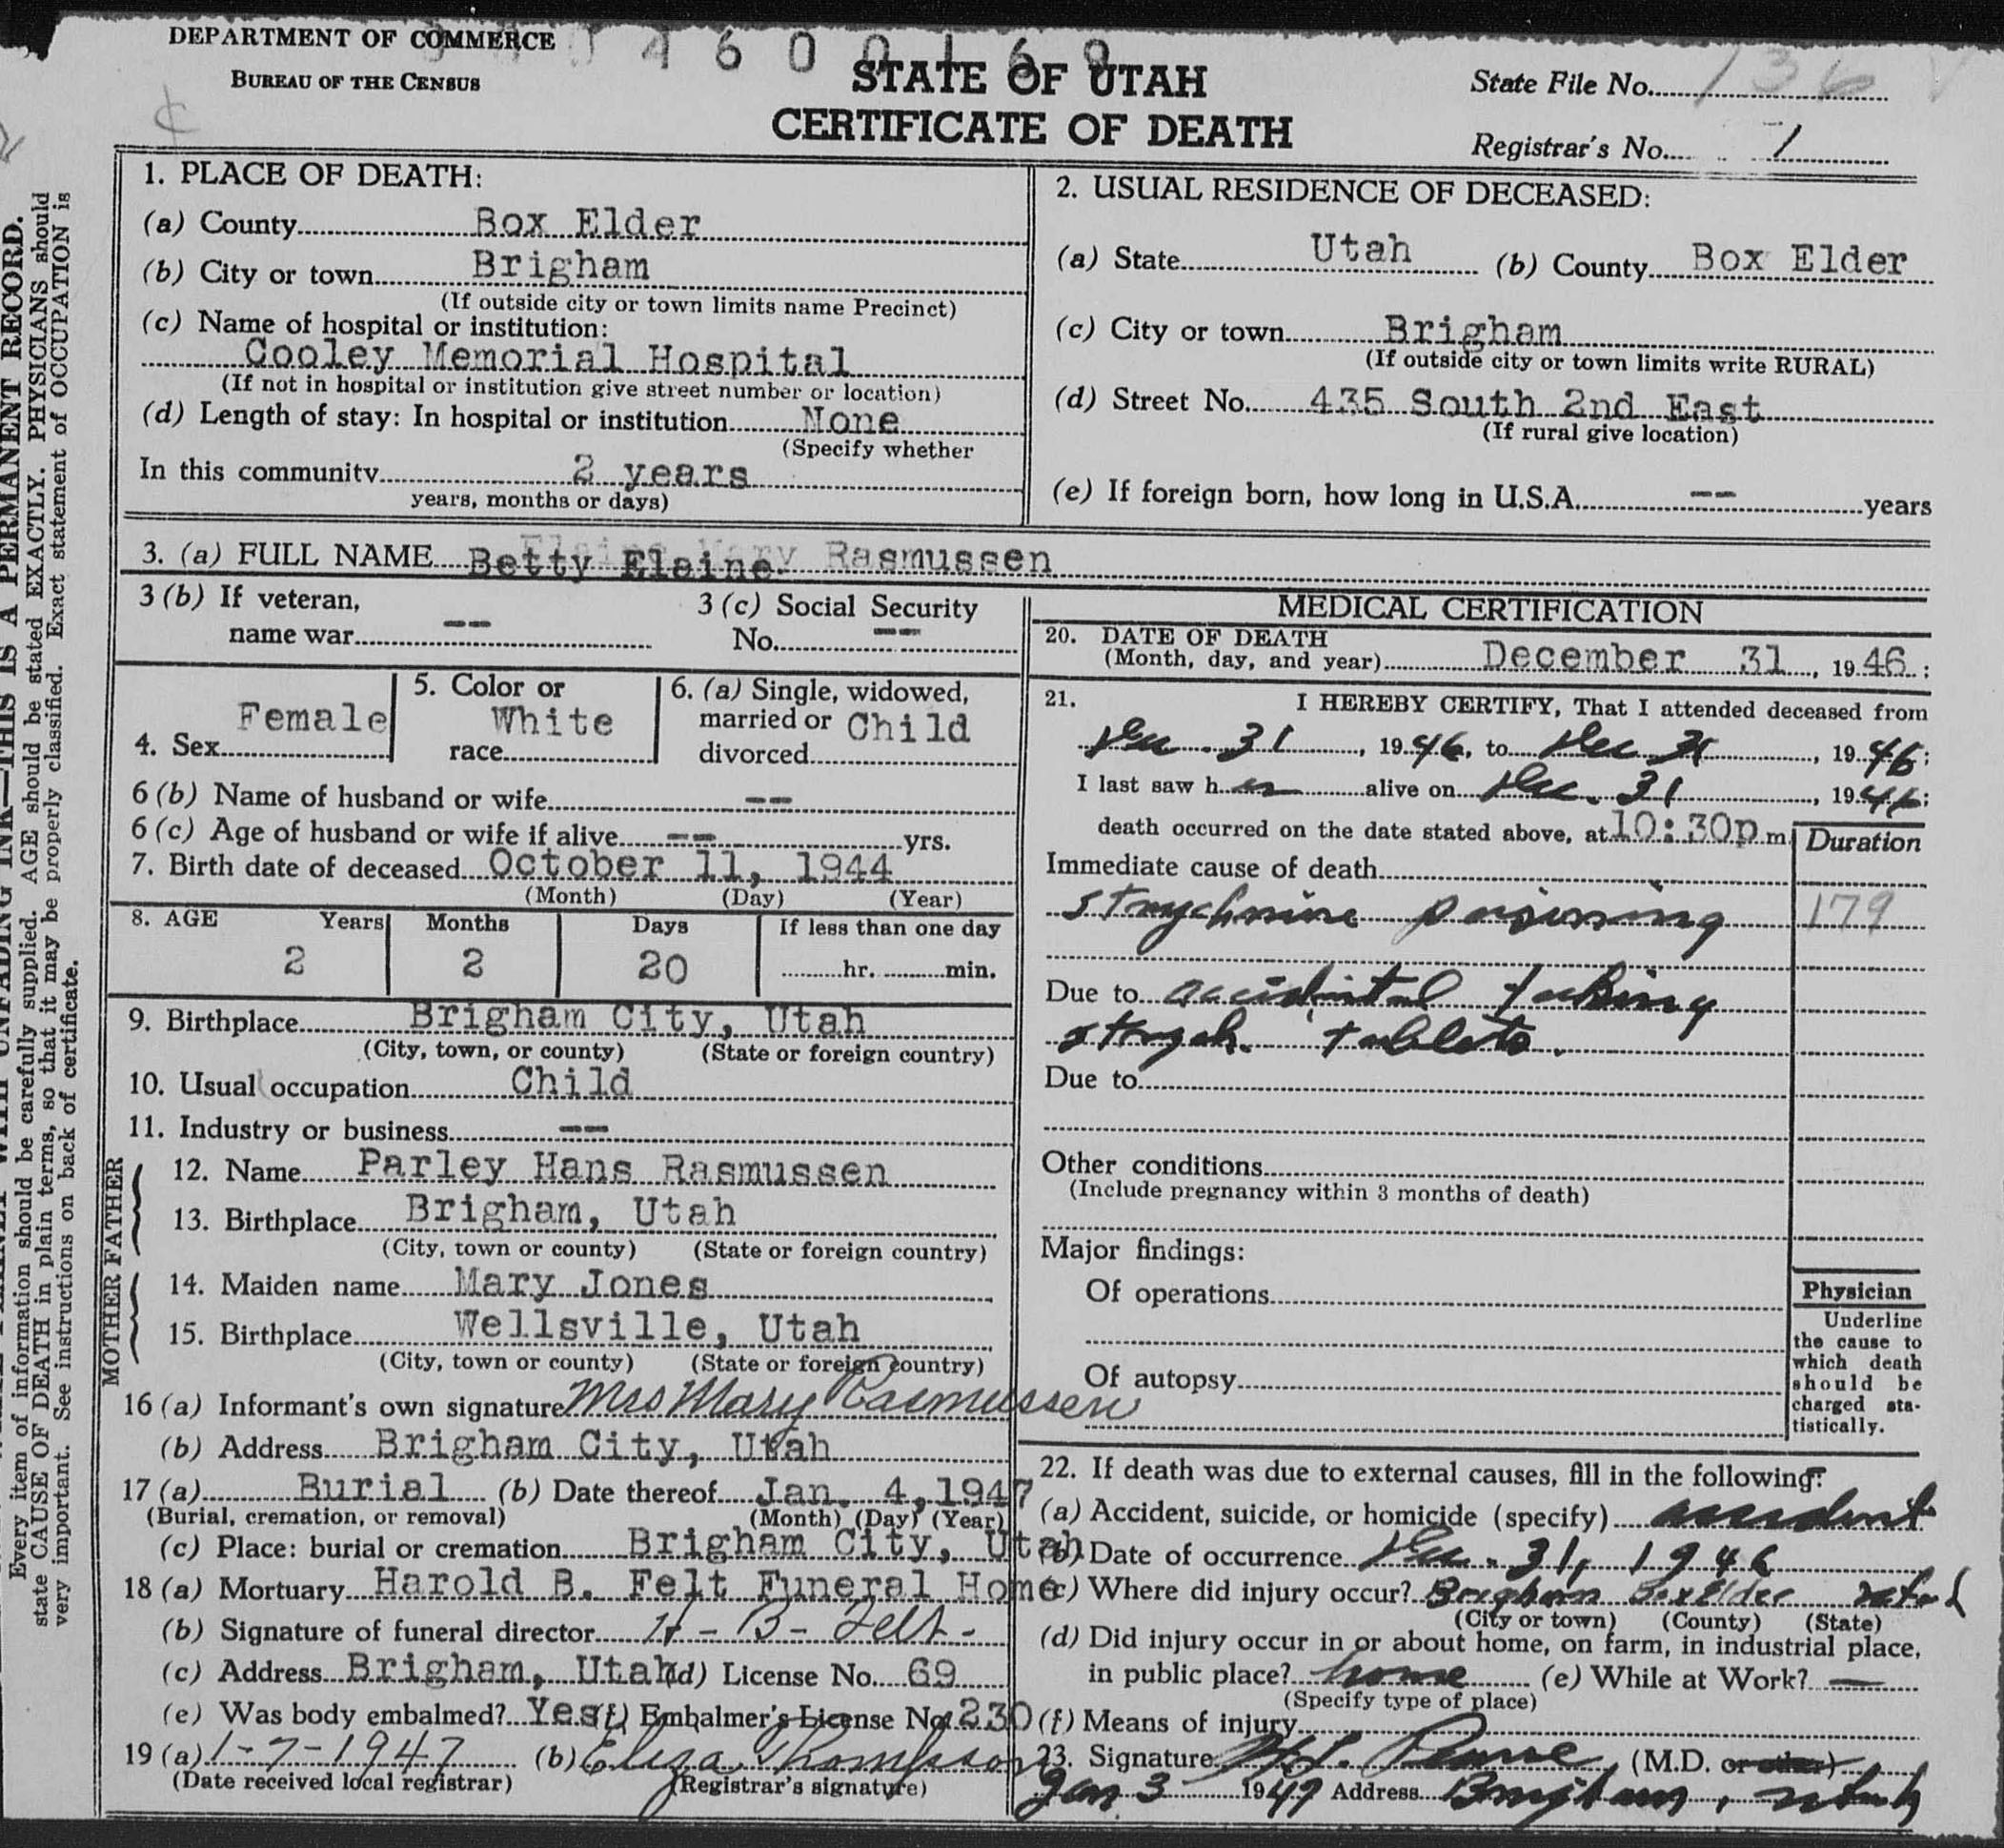 DEPARTMENT OF COMMERCE
BUREAU OF THE CENSUS
STATE OF UTAH
CERTIFICATE OF DEATH
State File No. 136
Registrar's No. 1
1. PLACE OF DEATH:
(a) County Box Elder
(b) City or town Brigham
(If outside city or town limits name Precinct)
(c) Name of hospital or institution:
Cooley Memorial Hospital
(If not in hospital or institution give street number or location)
(d) Length of stay: In hospital or institution None
(Specify whether
In this community 2 years
years, months or days)
2. USUAL RESIDENCE OF DECEASED:
(a) State Utah (b) County Box Elder
(c) City or town Brigham
(If outside city or town limits write RURAL)
(d) Street No. 435 South 2nd East
(If rural give location)
(e) If foreign born, how long in U.S.A. -- years
3. (a) FULL NAME Betty Elaine Rasmussen
3 (b) If veteran,
name war --
3 (c) Social Security
No. --
4. Sex Female
5. Color or
race White
6. (a) Single, widowed,
married or Child
divorced
6 (b) Name of husband or wife --
6 (c) Age of husband or wife if alive -- yrs.
7. Birth date of deceased October 11, 1944
(Month) (Day) (Year)
8. AGE Years Months Days If less than one day
2 2 20 hr. min.
9. Birthplace Brigham City, Utah
(City, town, or county) (State or foreign country)
10. Usual occupation Child
11. Industry or business --
FATHER
12. Name Parley Hans Rasmussen
13. Birthplace Brigham, Utah
(City, town or county) (State or foreign country)
MOTHER
14. Maiden name Mary Jones
15. Birthplace Wellsville, Utah
(City, town or county) (State or foreign country)
16 (a) Informant's own signature Mrs Mary Rasmussen
(b) Address Brigham City, Utah
17 (a) Burial (b) Date thereof Jan. 4, 1947
(Burial, cremation, or removal) (Month) (Day) (Year)
(c) Place: burial or cremation Brigham City, Utah
18 (a) Mortuary Harold B. Felt Funeral Home
(b) Signature of funeral director H - B - Felt -
(c) Address Brigham, Utah (d) License No. 69
(e) Was body embalmed? Yes (f) Embalmer's License No. 230
19 (a) 1-7-1947 (b) Eliza Thompson
(Date received local registrar) (Registrar's signature)
MEDICAL CERTIFICATION
20. DATE OF DEATH
(Month, day, and year) December 31, 1946;
21. I HEREBY CERTIFY, That I attended deceased from
Dec. 31, 1946, to Dec 31, 1946;
I last saw her alive on Dec. 31, 1946;
death occurred on the date stated above, at 10:30p m.
Duration
Immediate cause of death
strychnine poisoning 179
Due to accidental taking
strych. tablets.
Due to
Other conditions
(Include pregnancy within 3 months of death)
Major findings:
Of operations
Of autopsy
Physician
Underline
the cause to
which death
should be
charged sta-
tistically.
22. If death was due to external causes, fill in the following:
(a) Accident, suicide, or homicide (specify) accident
(b) Date of occurrence Dec. 31, 1946
(c) Where did injury occur? Brigham Box Elder Utah
(City or town) (County) (State)
(d) Did injury occur in or about home, on farm, in industrial place,
in public place? home (e) While at Work? —
(Specify type of place)
(f) Means of injury
23. Signature (M.D. or other)
Jan 3 1947 Address Brigham, Utah
THIS IS A PERMANENT RECORD.
Every item of information should be carefully supplied. AGE should be stated EXACTLY. PHYSICIANS should
state CAUSE OF DEATH in plain terms, so that it may be properly classified. Exact statement of OCCUPATION is
very important. See instructions on back of certificate.